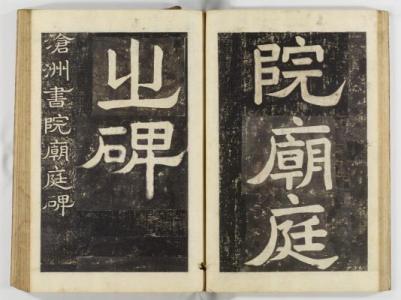 院廟庭
之碑
滄洲書院廟庭碑